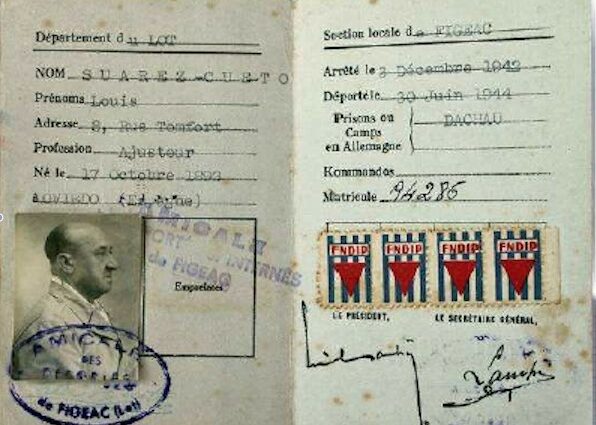 Département du LOT
NOM SUAREZ-CUETO
Prénoms Louis
Adresse 8, Rue Tomfort
Profession Ajusteur
Né le 17 Octobre 1892
A OVIEDO (Espagne)
AMICALE
INTERNÉS
de FIGEAC
Empreintes
AMICALE
DES
de FIGEAC (Lot)
Section locale de FIGEAC
Arrêté le 3 Décembre 1942
Déporté le 30 Juin 1944
Prisons ou
Camps
en Allemagne
DACHAU
Kommandos
Matricule 94286
FNDIP FNDIP FNDIP FNDIP
LE PRÉSIDENT, LE SECRÉTAIRE GÉNÉRAL,